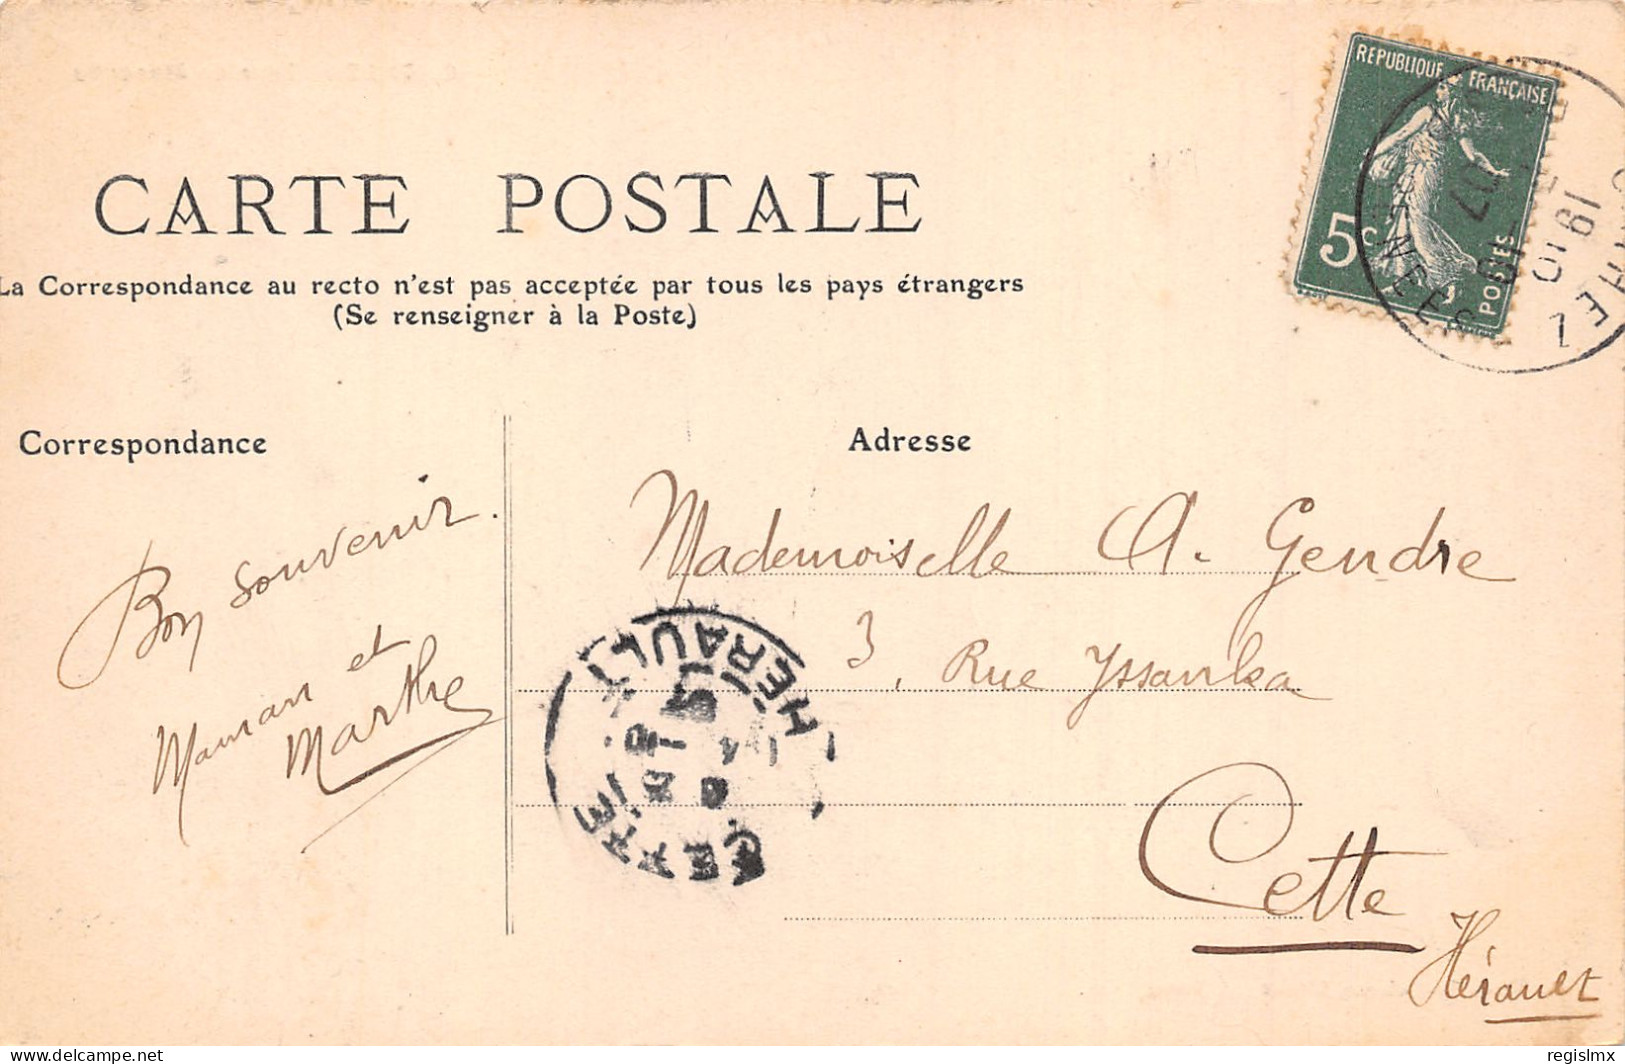 CARTE POSTALE
La Correspondance au recto n'est pas acceptée par tous les pays étrangers
(Se renseigner à la Poste)
REPUBLIQUE FRANÇAISE
5c
POSTES
19 10 07
Correspondance
Bon souvenir.
Maman et
Marthe
Adresse
Mademoiselle A. Gendre
3, Rue Yssanka
Cette
Hérault
CETTE
HÉRAULT
delcampe.net
regislmx